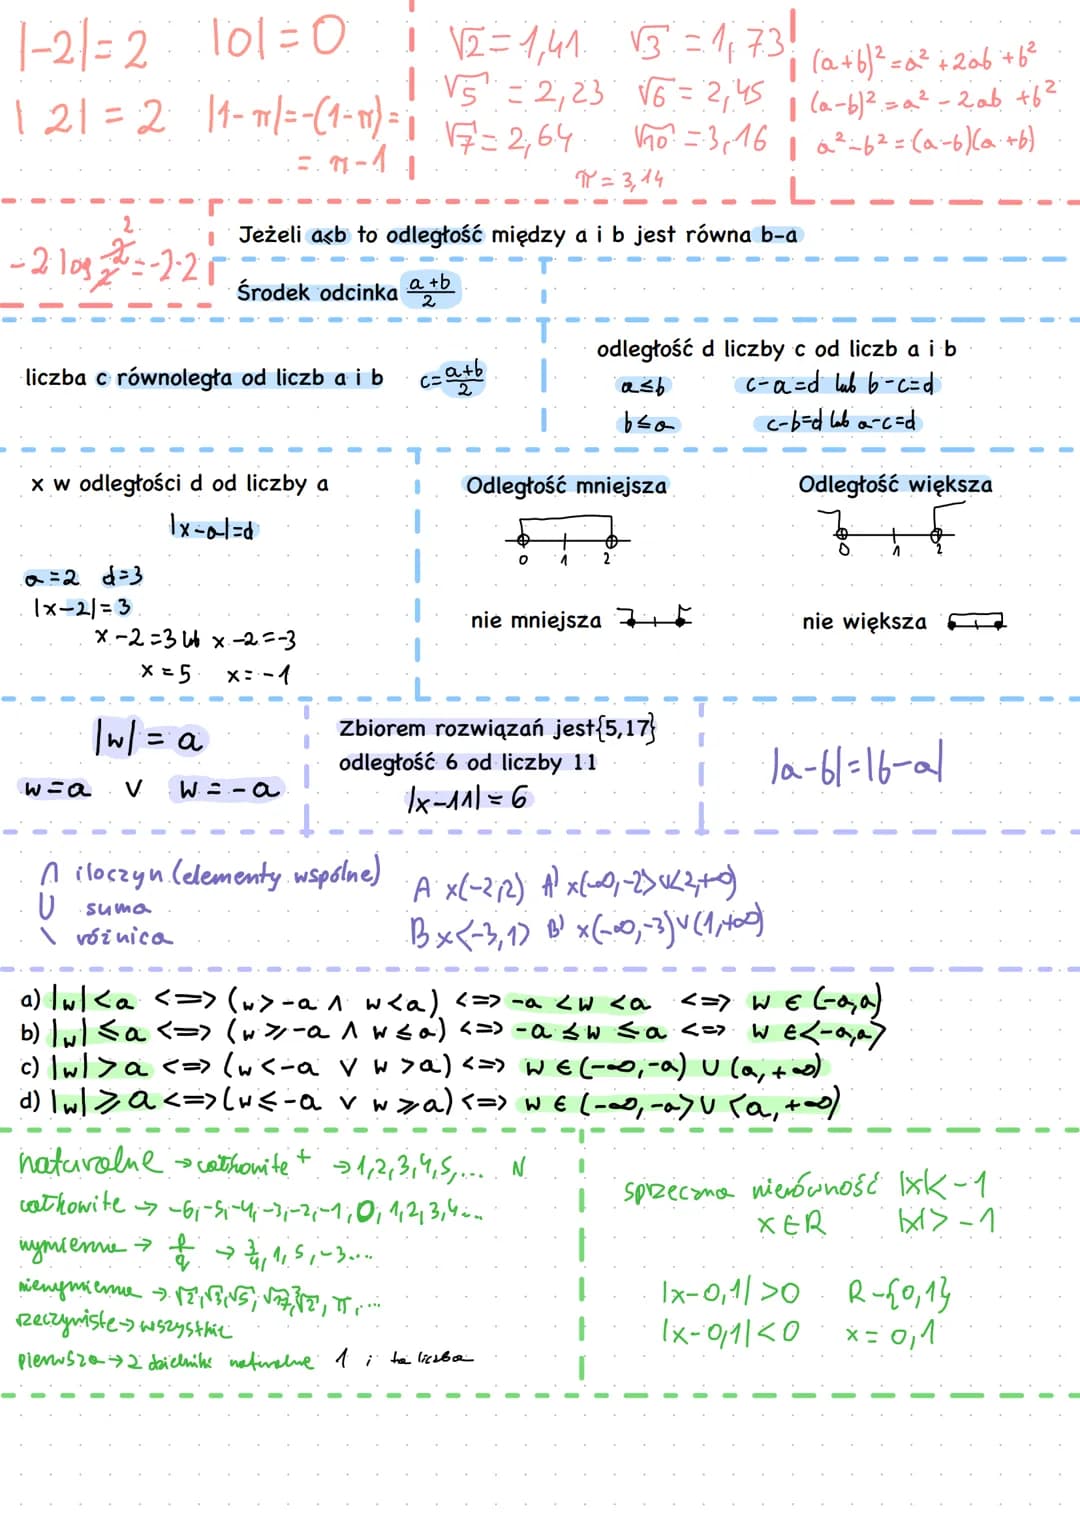 |-2|=2 |0|=0
|2|=2 |1-π|=-(1-π)=
= π-1
√2=1,41 √3=1,73
√5=2,23 √6=2,45
√7=2,64 √10=3,16
π=3,14
(a+b)²=a²+2ab+b²
(a-b)²=a²-2ab+b²
a²-b²=(a-b)(a+b)
Jeżeli a≤b to odległość między a i b jest równa b-a
Środek odcinka a+b/2
liczba c równoległa od liczb a i b c=a+b/2
odległość d liczby c od liczb a i b
a≤b c-a=d lub b-c=d
b≤a c-b=d lub a-c=d
x w odległości d od liczby a
|x-a|=d
a=2 d=3
|x-2|=3
x-2=3 lub x-2=-3
x=5 x=-1
Odległość mniejsza
0 1 2
nie mniejsza
Odległość większa
0 1 2
nie większa
|w|=a
w=a ∨ w=-a
Zbiorem rozwiązań jest{5,17}
odległość 6 od liczby 11
|x-11|=6
|a-b|=|b-a|
∩ iloczyn (elementy wspólne)
∪ suma
\ różnica
A x(-2,2) A' x(-∞,-2>∪<2,+∞)
B x<-3,1> B' x(-∞,-3)∨(1,+∞)
a) |w|<a <=> (w>-a ∧ w<a) <=> -a<w<a <=> w∈(-a,a)
b) |w|≤a <=> (w≥-a ∧ w≤a) <=> -a≤w≤a <=> w∈<-a,a>
c) |w|>a <=> (w<-a ∨ w>a) <=> w∈(-∞,-a)∪(a,+∞)
d) |w|≥a <=> (w≤-a ∨ w≥a) <=> w∈(-∞,-a>∪<a,+∞)
naturalne → całkowite + → 1,2,3,4,5,... N
całkowite → -6,-5,-4,-3,-2,-1,0,1,2,3,4...
wymierne → p/q → 3/4,1,5,-3....
niewymierne → √2,√3,√5,√7,³√2,π,...
rzeczywiste → wszystkie
pierwsza → 2 dzielniki naturalne 1 i ta liczba
sprzeczna nierówność |x|<-1
x∈R |x|>-1
|x-0,1|>0 R-{0,1}
|x-0,1|<0 x=0,1